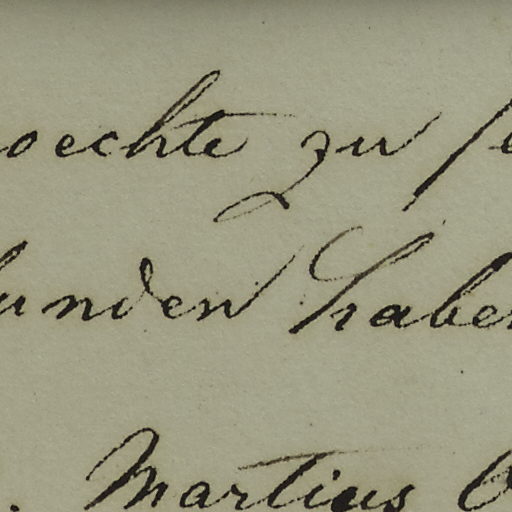 oechte zu se
unden haben
. Martius